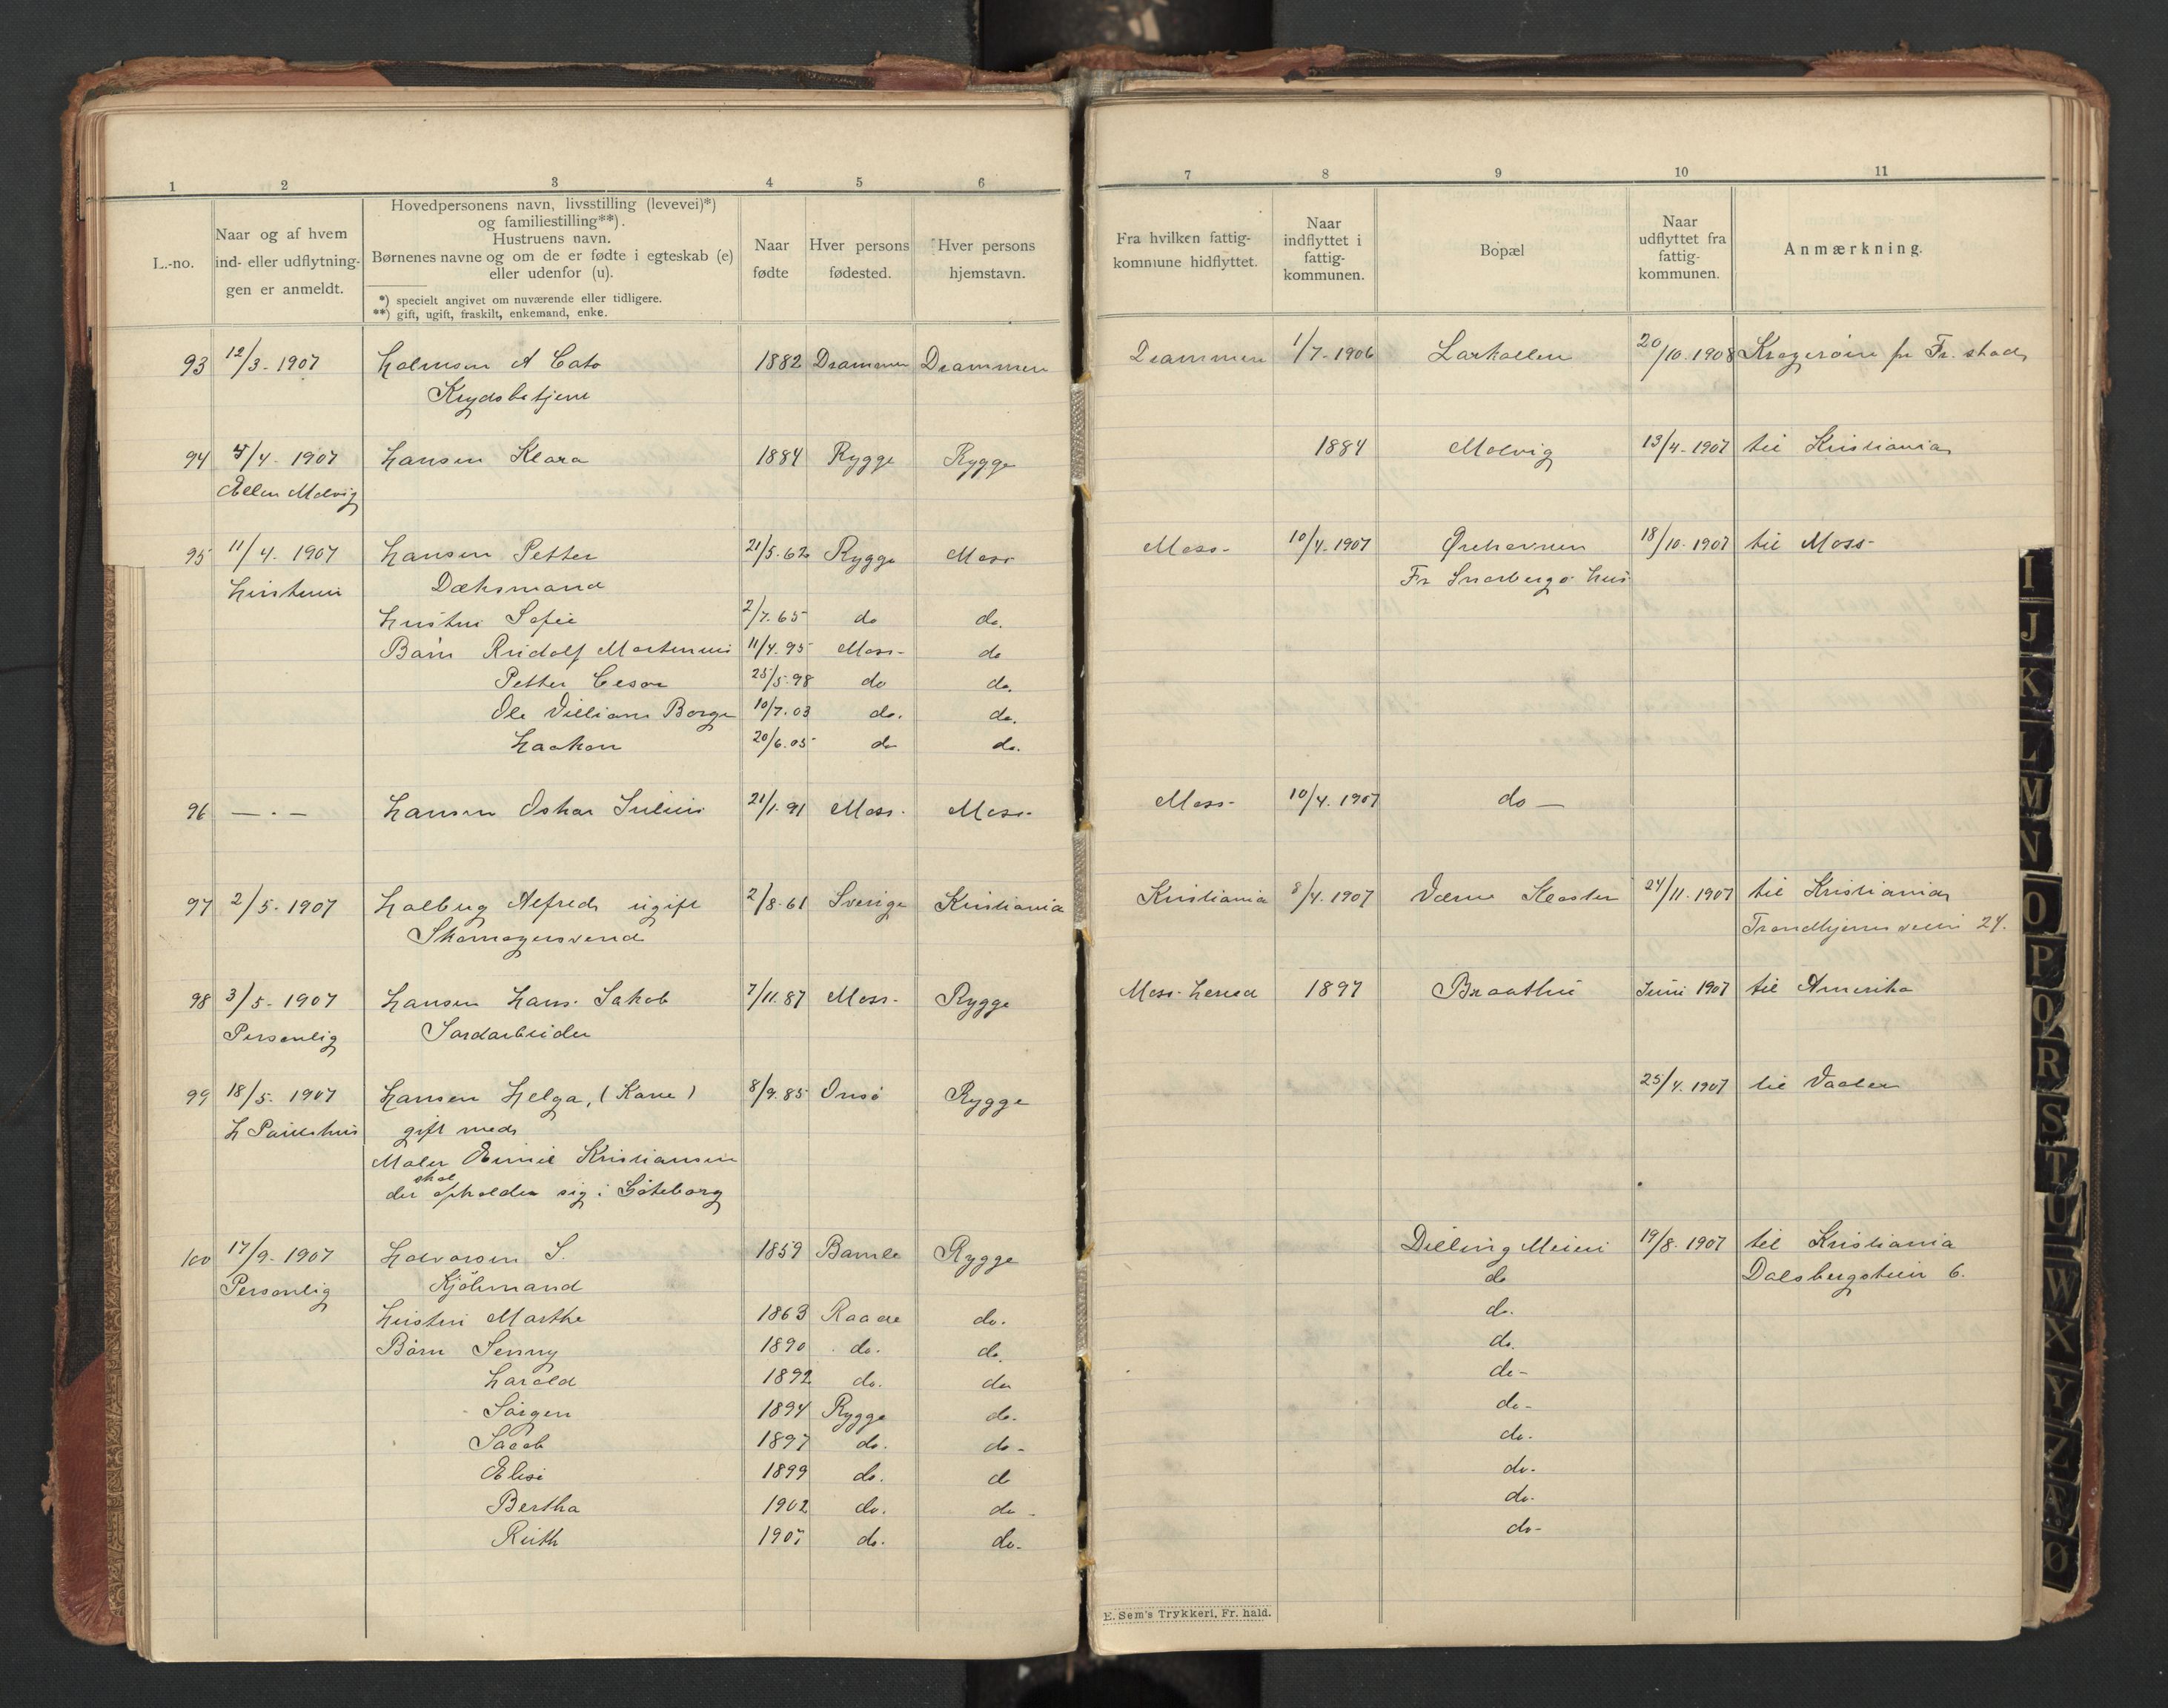 1 2 3 4 5 6 7 8 9 10 11
L.-no.
Naar og af hvem
ind- eller udflytnin-
gen er anmeldt.
Hovedpersonens navn, livsstilling (levevei)*)
og familiestilling**).
Hustruens navn.
Børnenes navne og om de er fødte i egteskab (e)
eller udenfor (u).
*) specielt angivet om nuværende eller tidligere.
**) gift, ugift, fraskilt, enkemand, enke.
Naar
fødte
Hver persons
fødested.
Hver persons
hjemstavn.
Fra hvilken fattig-
kommune hidflyttet.
Naar
indflyttet i
fattig-
kommunen.
Bopæl
Naar
udflyttet fra
fattig-
kommunen.
Anmærkning.
93 12/3. 1907 Holmsen A Cato 1882 Drammen Drammen Drammen 1/7. 1906 Larkollen 20/10. 1908 Kragerøen pr Fr. stad
Krydsbetjent
94 5/4. 1907 Hansen Klara 1884 Rygge Rygge 1884 Molvig 13/4. 1907 til Kristiania
Ellen Molvig
95 11/4. 1907 Hansen Petter 21/5. 62 Rygge Moss Moss 10/4. 1907 Ørehavnen 18/10. 1907 til Moss
Hustruen Dæksmand Fr Snarbergs hus
Hustru Sofie 2/7. 65 do do.
Børn Rudolf Martinius 11/4. 95 Moss do
Petter Cesar 25/5. 98 do do.
Ole Villiam Borge 10/7. 03 do. do.
Haakon 20/6. 05 do do.
96 — . — Hansen Oskar Julius 21/1. 91 Moss. Moss. Moss 10/4. 1907 do —
97 2/5. 1907 Holberg Alfred ugift 2/8. 61 Sverige Kristiania Kristiania 8/4. 1907 Værne Kloster 24/11. 1907 til Kristiania
Skomagersvend Trondhjemsveien 24.
98 3/5. 1907 Hansen Hans Jakob 7/11. 87 Moss. Rygge Moss. herred 1897 Braathen Juni 1907 til Amerika
Personlig Jordarbeider
99 18/5. 1907 Hansen Helga, (Kone) 8/9. 85 Onsø Rygge 25/4. 1907 til Vaaler
H Paulshus gift med
Maler Emil Kristiansen
skal
der opholder sig i Göteborg
100 17/9. 1907 Halvorsen S. 1859 Bamle Rygge Dilling Meieri 19/8. 1907 til Kristiania
Personlig Kjøbmand do Dalsbergstien 6.
Hustru Marthe 1863 Raade do. do.
Børn Jenny 1890 do. do. do.
Harald 1892 do. do do-
Jørgen 1894 Rygge do. do-
Jacob 1897 do. do- do.
Elise 1899 do. do do.
Bertha 1902 do. do- do.
Ruth 1905 do. do. do-
E. Sem's Trykkeri, Fr. hald.
I
J
K
L
M
N
O
P
Q
R
S
T
U
W
X
Y
Z
Æ
Ø